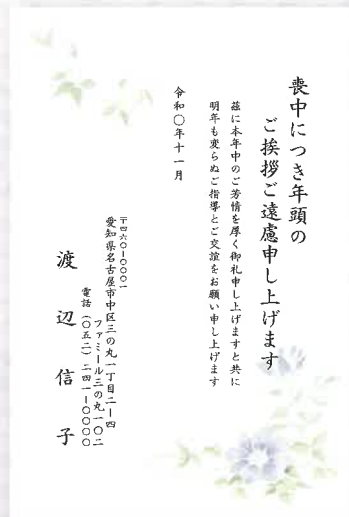 喪中につき年頭の
ご挨拶ご遠慮申し上げます
茲に本年中のご芳情を厚く御礼申し上げますと共に
明年も変らぬご指導とご交誼をお願い申し上げます
令和〇年十一月
〒四六〇-〇〇〇一
愛知県名古屋市中区三の丸一丁目二-四
ファミール三の丸一〇二
電話(〇五二)二四一-〇〇〇〇
渡辺信子